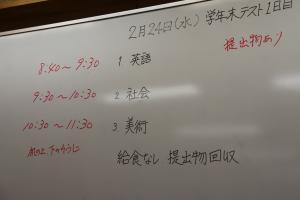 2月24日(水) 学年末テスト1日目
提出物あり
8:40〜9:30 1. 英語
9:30〜10:30 2. 社会
10:30〜11:30 3. 美術
給食なし 提出物回収